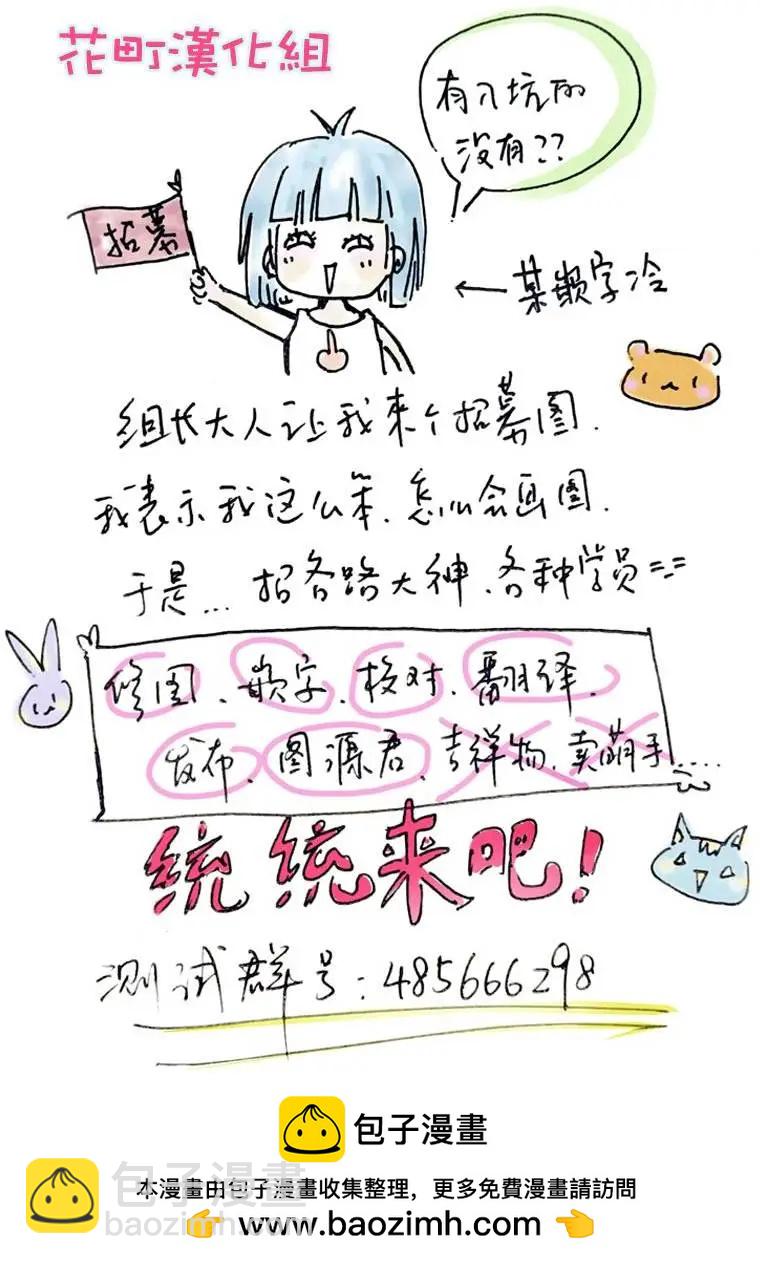 花町漢化組
有入坑的
没有??
招募
←某嵌字冷
组长大人让我来个招募图.
我表示我这么笨.怎么会画图.
于是...招各路大神、各种学员==
修图、嵌字、校对、翻译、
发布、图源君、吉祥物、卖萌手....
统统来吧!
测试群号:485666298
包子漫畫
包子漫畫
本漫畫由包子漫畫收集整理,更多免費漫畫請訪問
👉 www.baozimh.com 👈